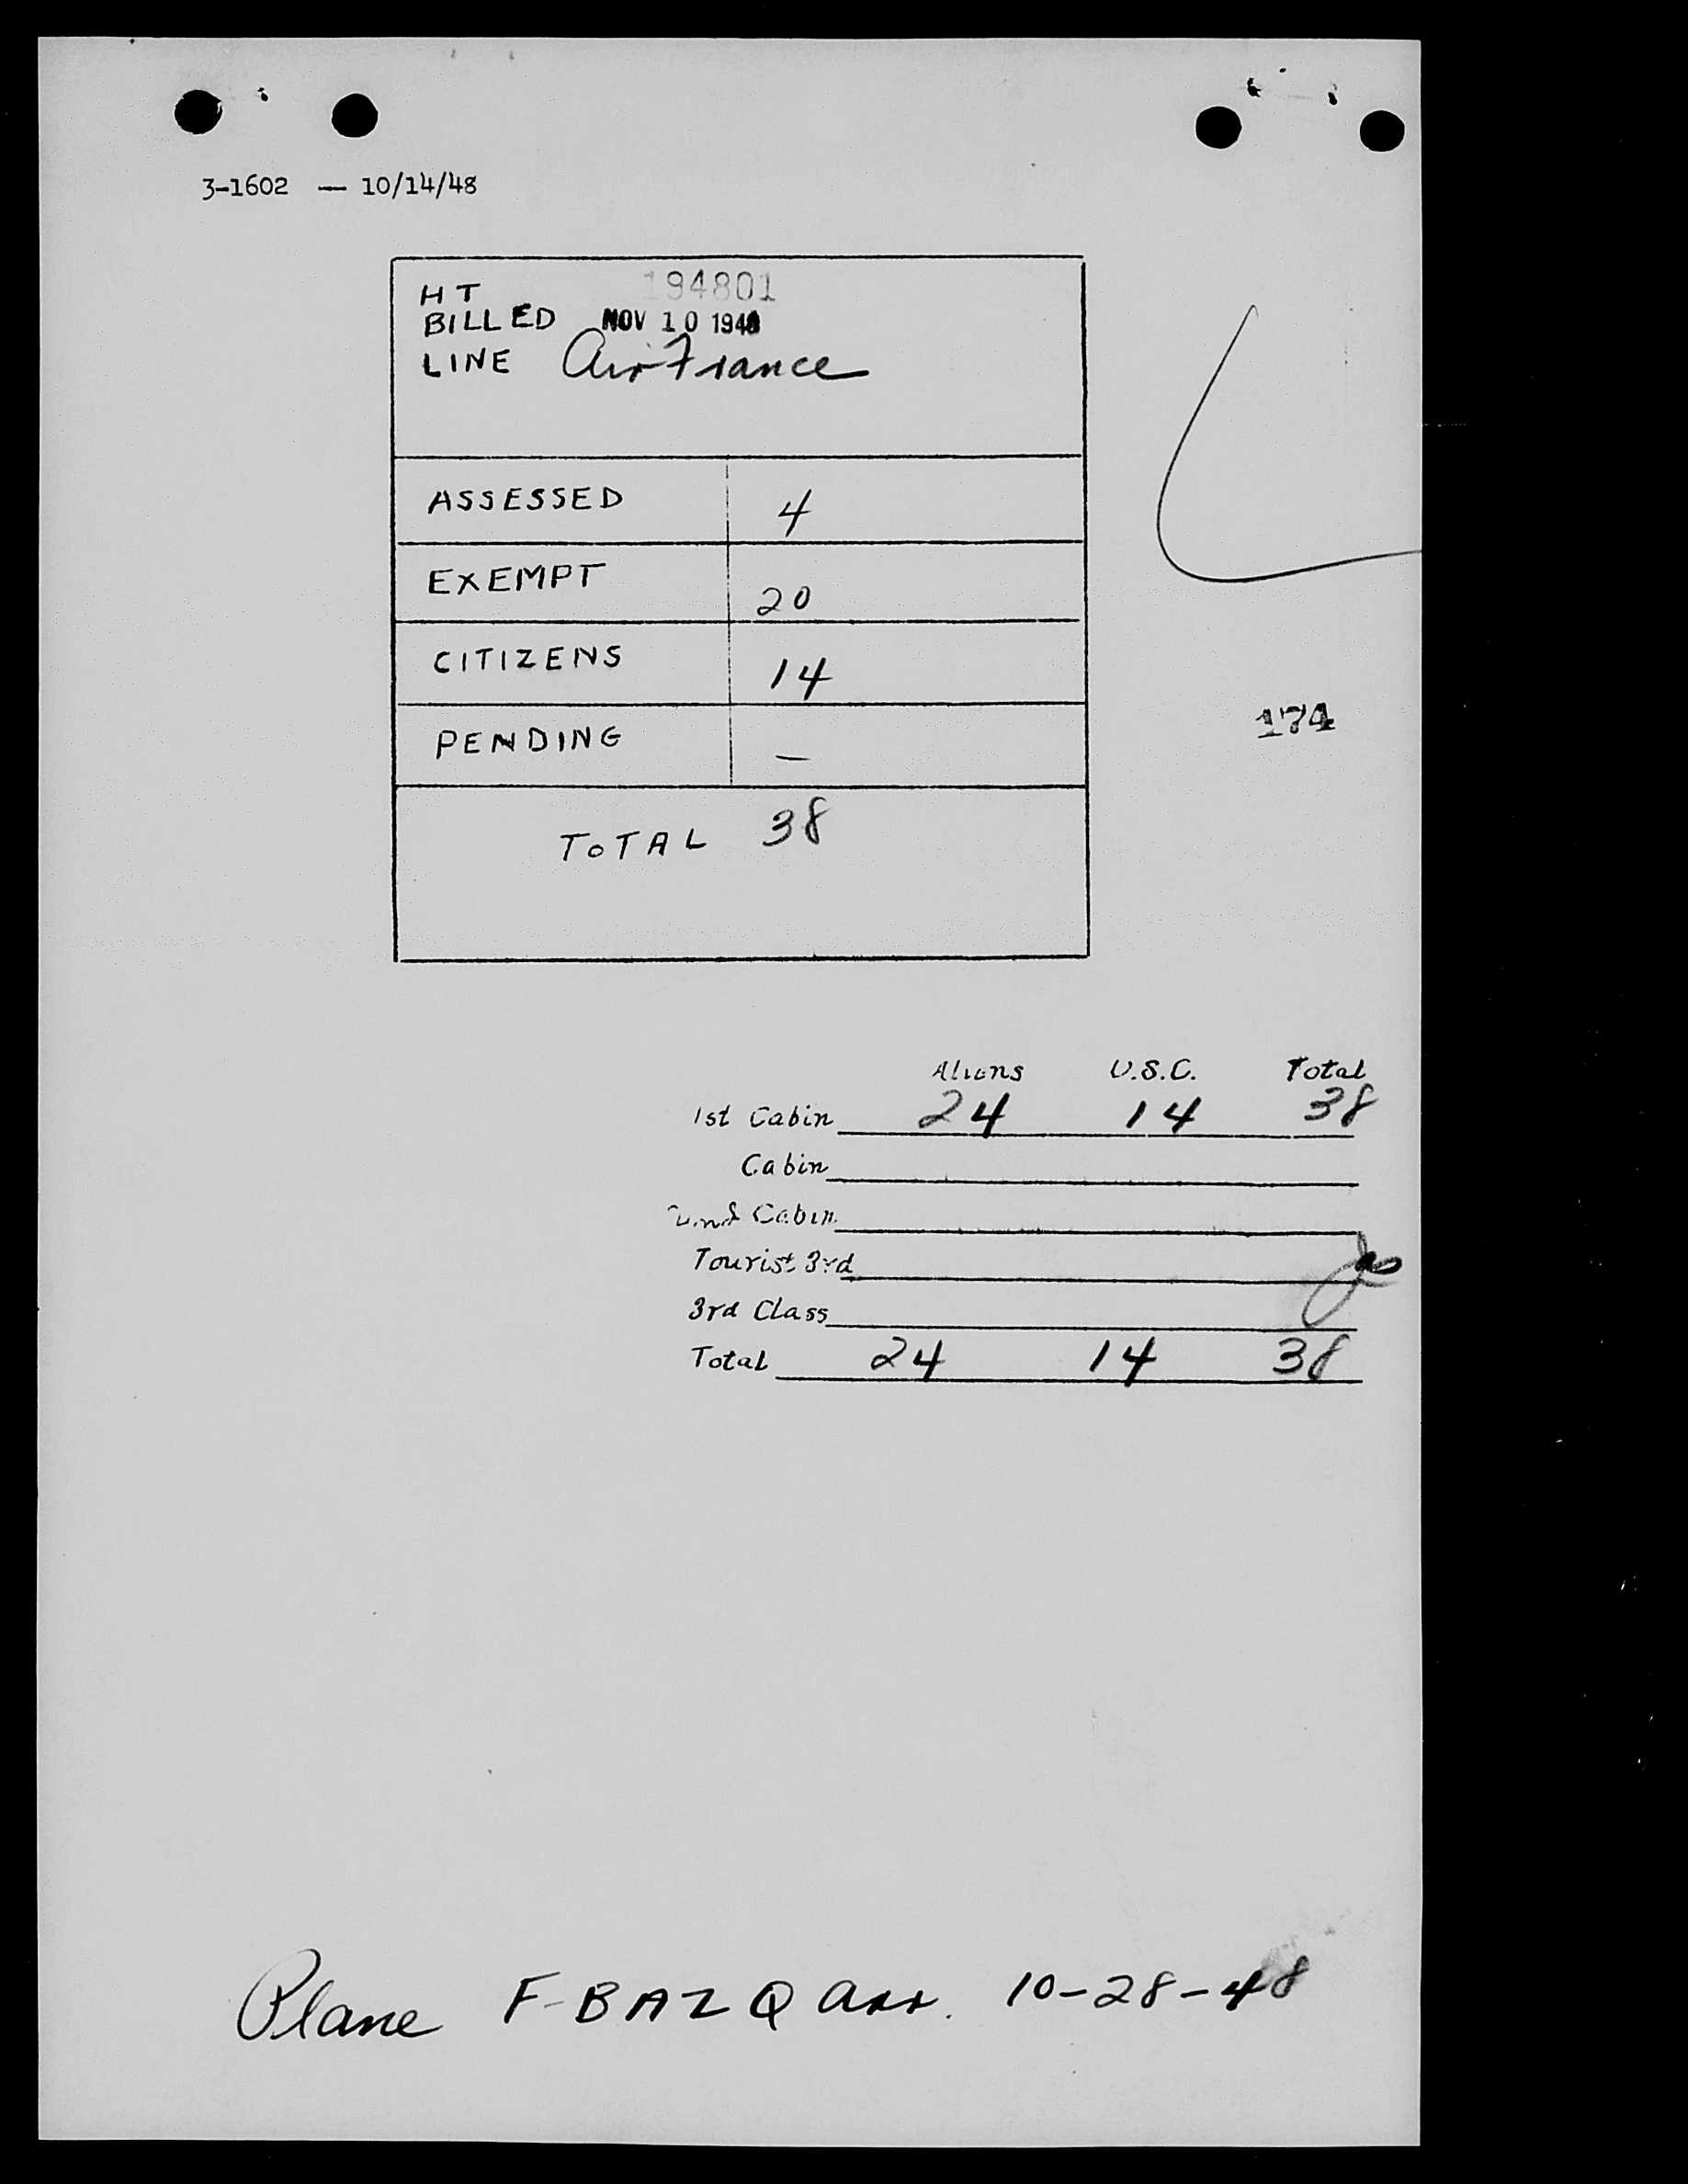 3-1602 — 10/14/48
HT 194801
BILLED NOV 10 1948
LINE Air France
ASSESSED 4
EXEMPT 20
CITIZENS 14
PENDING —
174
TOTAL 38
Aliens U.S.C. Total
1st Cabin 24 14 38
Cabin
2nd Cabin
Tourist 3rd
3rd Class
Total 24 14 38
Plane F-BAZQ arr. 10-28-48